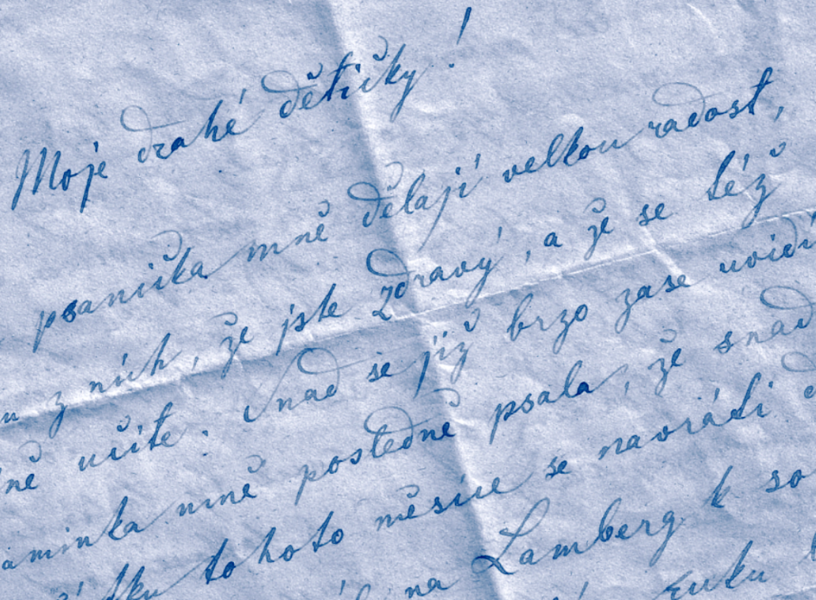 Moje drahé dětičky!
psaníčka mně dělají velkou radost,
z nich, že jste zdravý, a že se též
učíte. Snad se již brzo zase uvidí
mně posledně psala, že snad
tohoto měsíce se navrátí
na Lamberg k
ruku